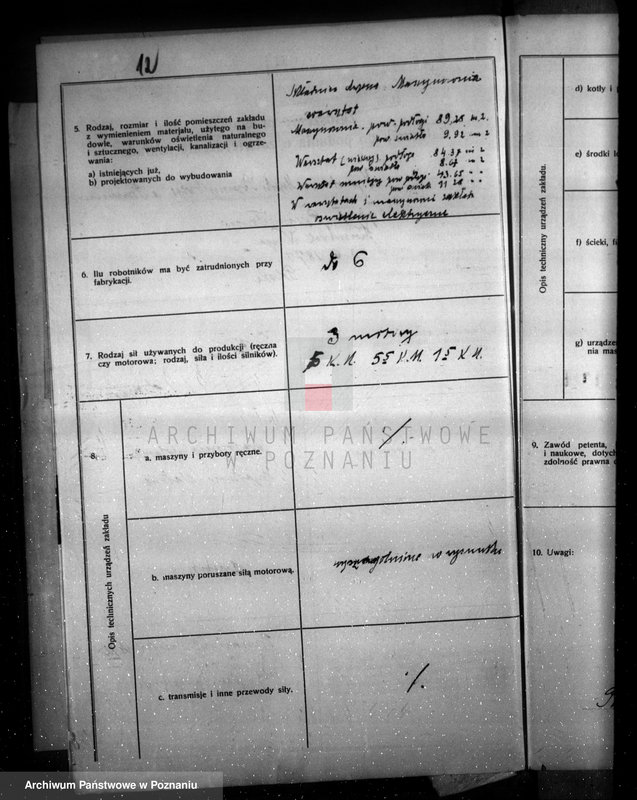 12
5. Rodzaj, rozmiar i ilość pomieszczeń zakładu
z wymienieniem materjału, użytego na bu-
dowie, warunków oświetlenia naturalnego
i sztucznego, wentylacji, kanalizacji i ogrze-
wania:
a) istniejących już,
b) projektowanych do wybudowania
Składnica drzewa Maszynownia
warsztat
Maszynownia, pow. podłogi 89,28 m 2.
pow. światło 9,92 m 2
Warsztat podłoga 84.37 m 2
pow. światło 8.67 m 2
Warsztat pow. podłogi 43.65
pow. światło 11 28
W warsztatach i maszynowni zakład
oświetlenie elektryczne
6. Ilu robotników ma być zatrudnionych przy
fabrykacji.
do 6
7. Rodzaj sił używanych do produkcji (ręczna
czy motorowa; rodzaj, siła i ilości silników).
3 motory
5 K.M. 55 K.M. 15 K.M.
8.
Opis technicznych urządzeń zakładu
a. maszyny i przybory ręczne.
./.
b. maszyny poruszane siłą motorową.
wyszczególnione w rysunku
c. transmisje i inne przewody siły.
./.
Opis techniczny urządzeń zakładu.
d) kotły i
e) środki
f) ścieki,
g) urządze
nia mas
9. Zawód petenta,
i naukowe, dotych
zdolność prawna
10. Uwagi:
ARCHIWUM PAŃSTWOWE
W POZNANIU
Archiwum Państwowe w Poznaniu